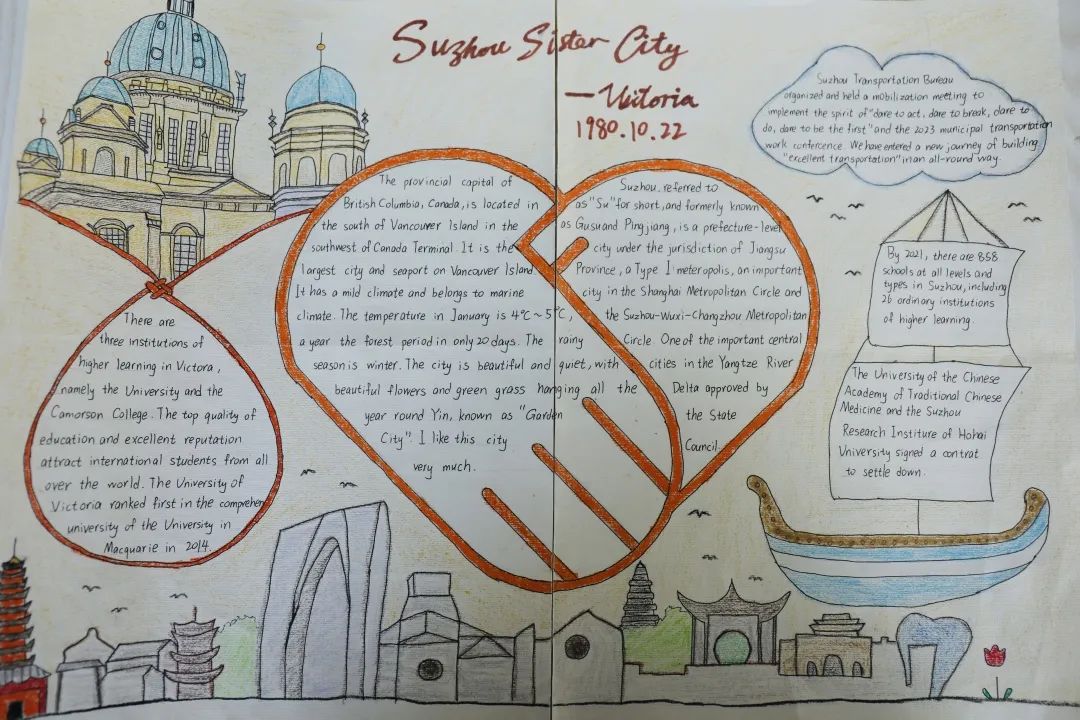 Suzhou Sister City
— Victoria
1980.10.22
Suzhou Transportation Bureau
organized and held a mobilization meeting to
implement the spirit of "dare to act, dare to break, dare to
do, dare to be the first" and the 2023 municipal transportation
work conference. We have entered a new journey of building
"excellent transportation" in an all-round way.
The provincial capital of
British Columbia, Canada, is located in
the south of Vancouver Island in the
southwest of Canada Terminal. It is the
largest city and seaport on Vancouver Island.
It has a mild climate and belongs to marine
climate. The temperature in January is 4°C~5°C,
a year the forest period in only 20 days. The rainy
season is winter. The city is beautiful and quiet, with
beautiful flowers and green grass hanging all the
year round Yin, known as "Garden
City". I like this city
very much.
Suzhou, referred to
as "Su" for short, and formerly known
as Gusu and Pingjiang, is a prefecture-level
city under the jurisdiction of Jiangsu
Province, a Type I meteropolis, an important
city in the Shanghai Metropolitan Circle and
the Suzhou-Wuxi-Changzhou Metropolitan
Circle. One of the important central
cities in the Yangtze River
Delta approved by
the State
Council.
By 2021, there are 858
schools at all levels and
types in Suzhou, including
26 ordinary institutions
of higher learning.
The University of the Chinese
Academy of Traditional Chinese
Medicine and the Suzhou
Research Institure of Hohai
University signed a contrat
to settle down.
There are
three institutions of
higher learning in Victora,
namely the University and the
Camorson College. The top quality of
education and excellent reputation
attract international students from all
over the world. The University of
Victoria ranked first in the comprehen
university of the University in
Macquarie in 2014.